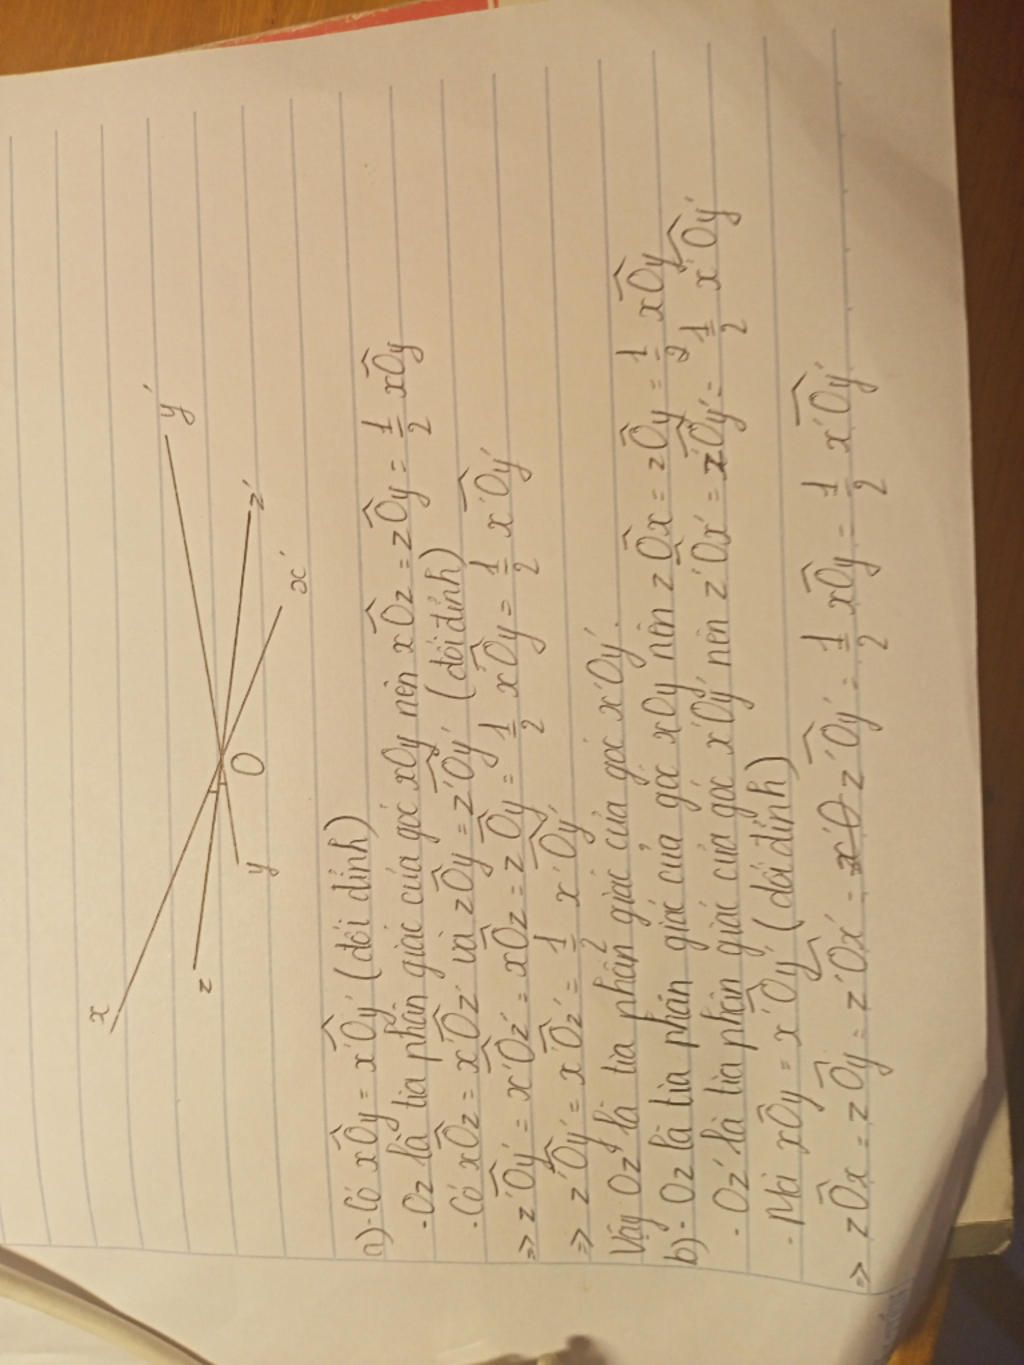 x
y'
z
z'
y
O
x'
a) - Có xÔy = x'Ôy' (đối đỉnh)
- Oz là tia phân giác của góc xOy nên xÔz = zÔy = 1/2 xÔy
- Có xÔz = x'Ôz' và zÔy = z'Ôy' (đối đỉnh)
=> z'Ôy' = x'Ôz' = xÔz = zÔy = 1/2 xÔy = 1/2 x'Ôy'
=> z'Ôy' = x'Ôz' = 1/2 x'Ôy'
Vậy Oz' là tia phân giác của góc x'Oy'.
b) - Oz là tia phân giác của góc xOy nên zÔx = zÔy = 1/2 xÔy
- Oz' là tia phân giác của góc x'Oy' nên z'Ôx' = z'Ôy' = 1/2 x'Ôy'
- Mà xÔy = x'Ôy' (đối đỉnh)
=> zÔx = zÔy = z'Ôx' = z'Ôy' = 1/2 xÔy = 1/2 x'Ôy'